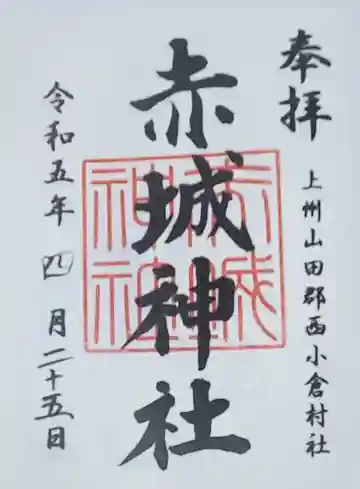 奉拝
上州山田郡西小倉村社
赤城神社
赤城
神社
令和五年四月二十五日